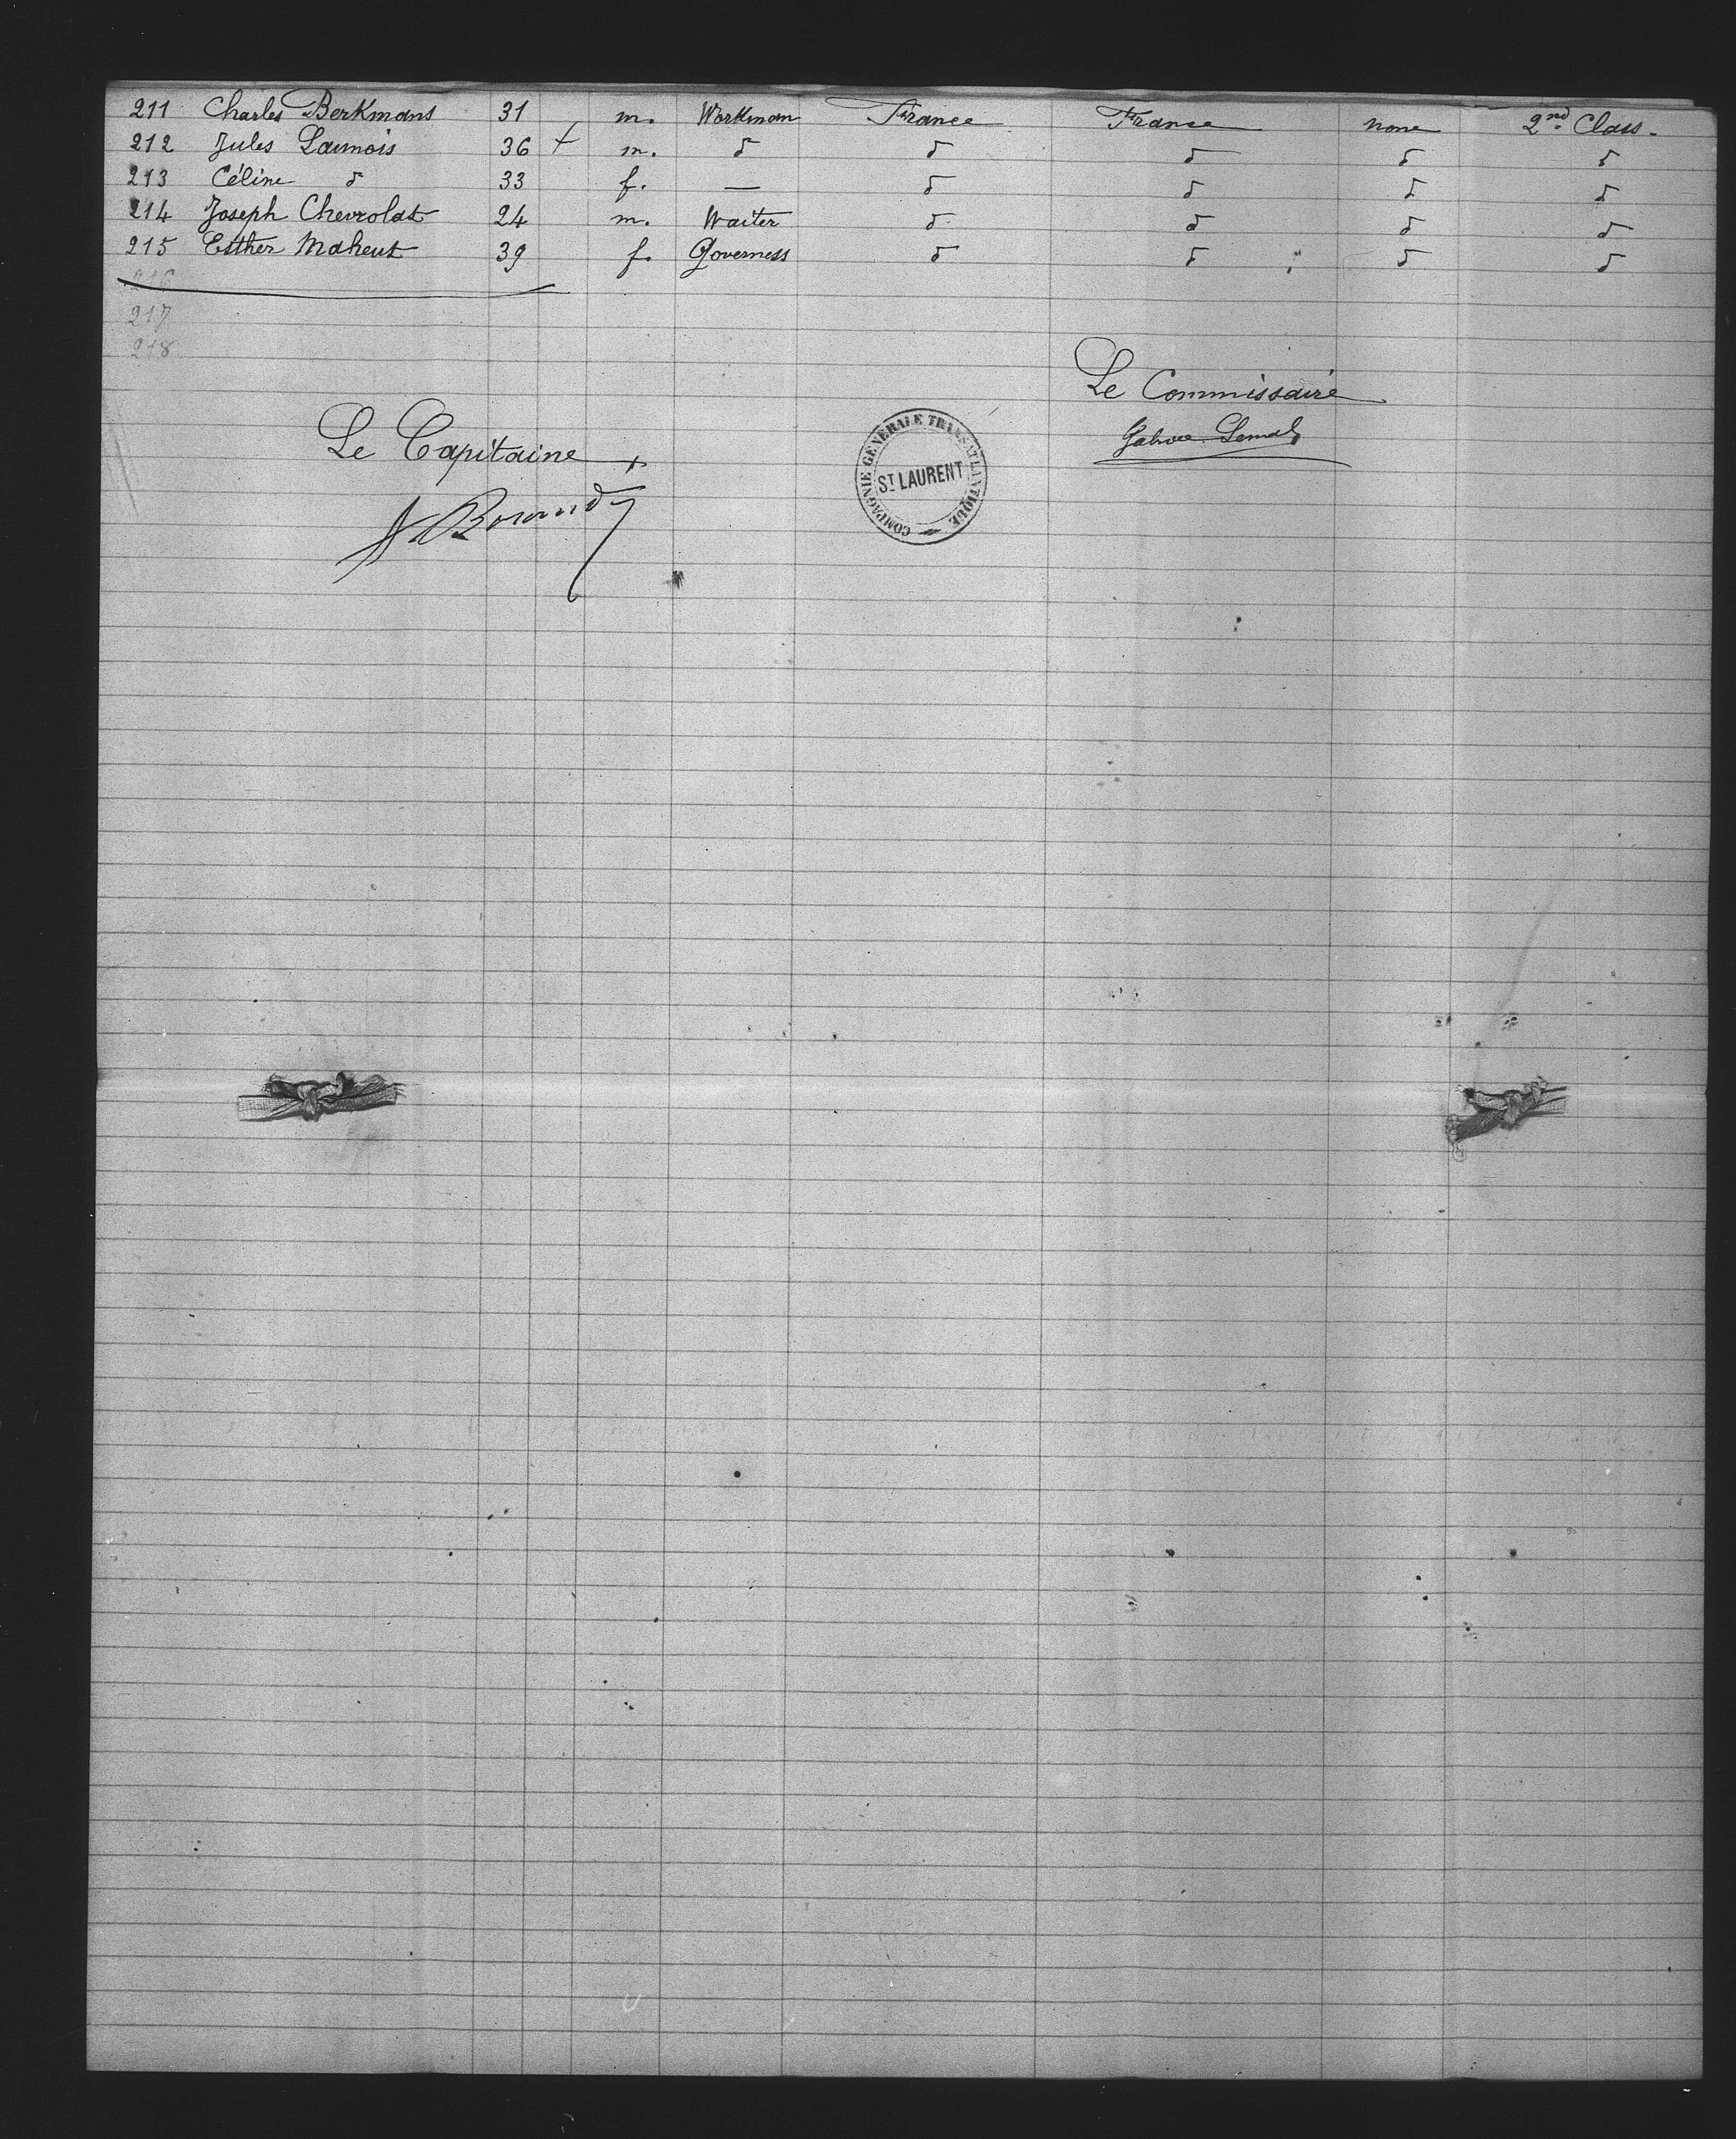 211 Charles Berkmans 31 m. Workman France France none 2nd Class.
212 Jules Launois 36 + m. d d d d d
213 Céline d 33 f. — d d d d
214 Joseph Chevrolat 24 m. Waiter d d d d
215 Esther Maheut 39 f. Governess d d d d
216
217
218
Le Commissaire
Le Capitaine
COMPAGNIE GENERALE TRANSATLANTIQUE
ST LAURENT